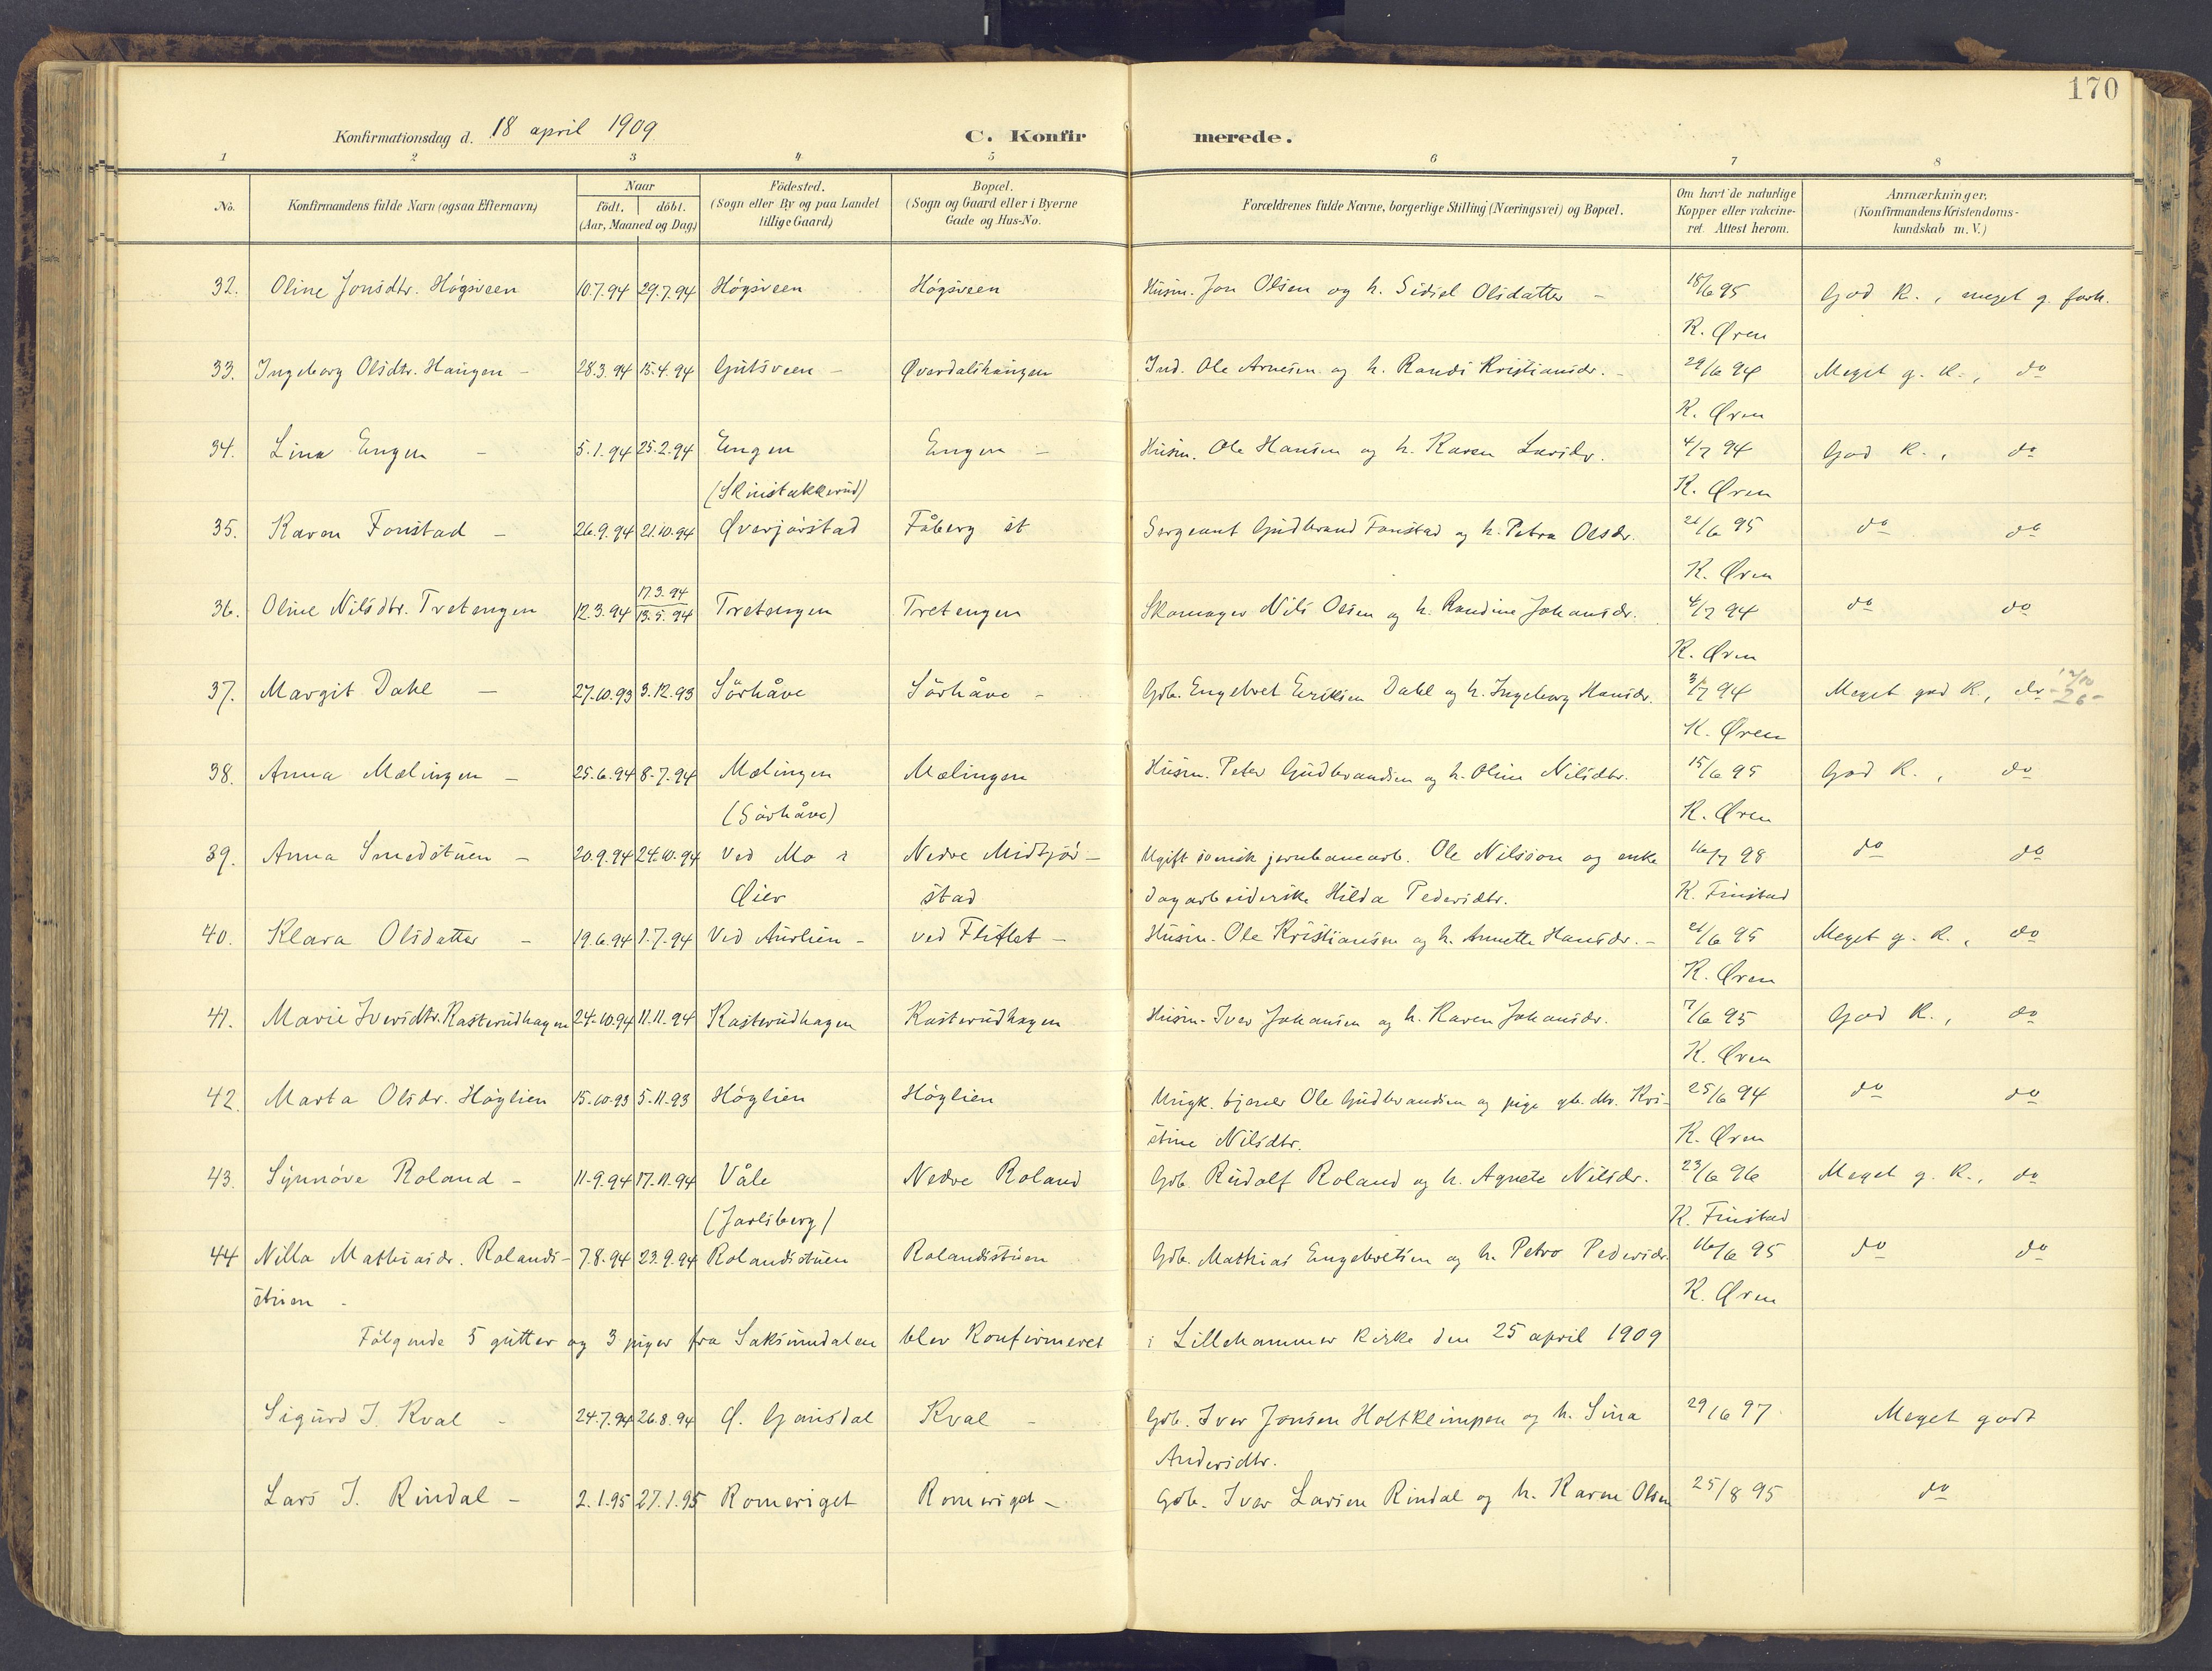 170
Konfirmationsdag d. 18 april 1909 C. Konfirmerede.
1 2 3 4 5 6 7 8
No. Konfirmandens fulde Navn (ogsaa Efternavn) Naar født. døbt. (Aar, Maaned og Dag) Fødested. (Sogn eller By og paa Landet tillige Gaard) Bopæl. (Sogn og Gaard eller i Byerne Gade og Hus-No. Forældrenes fulde Navne, borgerlige Stilling (Næringsvei) og Bopæl. Om havt de naturlige Kopper eller vakcineret. Attest herom. Anmærkninger. (Konfirmandens Kristendomskundskab m. V.)
32. Oline Jonsdtr. Høgsveen 10.7.94 29.7.94 Høgsveen Høgsveen Husm. Jon Olsen og h. Sidsel Olsdatter - 18/6 95 God K., meget g. forh.
K. Øren
33. Ingeborg Olsdtr. Haugen - 28.3.94 15.4.94 Gutsveen - Øverdalshaugen Ind. Ole Arnesen og h. Randi Kristiansdr. - 29/6 94 Meget g. K., do
K. Øren
34. Lina Engen - 5.1.94 25.2.94 Engen Engen - Husm. Ole Hansen og h. Karen Larsdr. 4/7 94 God K., do
(Skinstakkerud) K. Øren
35. Karen Fonstad - 26.9.94 21.10.94 Øverjørstad Fåberg st Sergeant Gudbrand Fonstad og h. Petra Olsdr. 21/6 95 do do
K. Øren
17.3.94
36. Oline Nilsdtr. Tretengen 12.3.94 13.5.94 Tretengen Tretengen Skomager Nils Olsen og h. Randine Johansdr. 4/7 94 do do
K. Øren
37. Margit Dahl - 27.10.93 3.12.93 Sørhåve Sørhåve - Gdb. Engebret Eriksen Dahl og h. Ingeborg Hansdr. 3/7 94 Meget god K., do 12/10 -26-
K. Øren
38. Anna Mælingen - 25.6.94 8.7.94 Mælingen Mælingen Husm. Peter Gudbrandsen og h. Oline Nilsdtr. 15/6 95 God K., do
(Sørhåve) K. Øren
39. Anna Smedstuen - 20.9.94 24.10.94 Ved Mo i Nedre Midtjør- Ugift svensk jernbanearb. Ole Nilsson og enke 16/7 98 do do
Øier stad dagarbeiderske Hilda Pedersdtr. K. Finstad
40. Klara Olsdatter - 19.6.94 1.7.94 Ved Aurlien - ved Fliflet - Husm. Ole Kristiansen og h. Annette Hansdr. - 21/6 95 Meget g. K., do
K. Øren
41. Marie Iversdtr. Kasterudhagen 24.10.94 11.11.94 Kasterudhagen Kasterudhagen Husm. Iver Johansen og h. Karen Johansdr. 7/6 95 God K., do
K. Øren
42. Marta Olsdr. Høglien 15.10.93 5.11.93 Høglien Høglien Ungk. tjener Ole Gudbrandsen og pige gb. dtr. Kri- 25/6 94 do do
stine Nilsdtr. K. Øren
43. Synnøve Roland - 11.9.94 17.11.94 Våle Nedre Roland Gdb. Rudolf Roland og h. Agnete Nilsdr. 23/6 96 Meget g. K., do
(Jarlsberg) K. Finstad
44 Nilla Mathiasdr. Rolands- 7.8.94 23.9.94 Rolandsstuen Rolandsstuen Gdb. Mathias Engebretsen og h. Petra Pedersdr. 16/6 95 do do
stuen - K. Øren
Følgende 5 gutter og 3 piger fra Saksumdalen blev Konfirmeret i Lillehammer kirke den 25 april 1909
Sigurd I. Kval - 24.7.94 26.8.94 Ø. Gausdal Kval - Gdb. Iver Jonsen Holtklimpen og h. Sina 29/6 97 Meget godt
Andersdtr.
Lars I. Rindal - 2.1.95 27.1.95 Romeriget Romeriget - Gdb. Iver Larsen Rindal og h. Karen Olsen 25/8 95 do